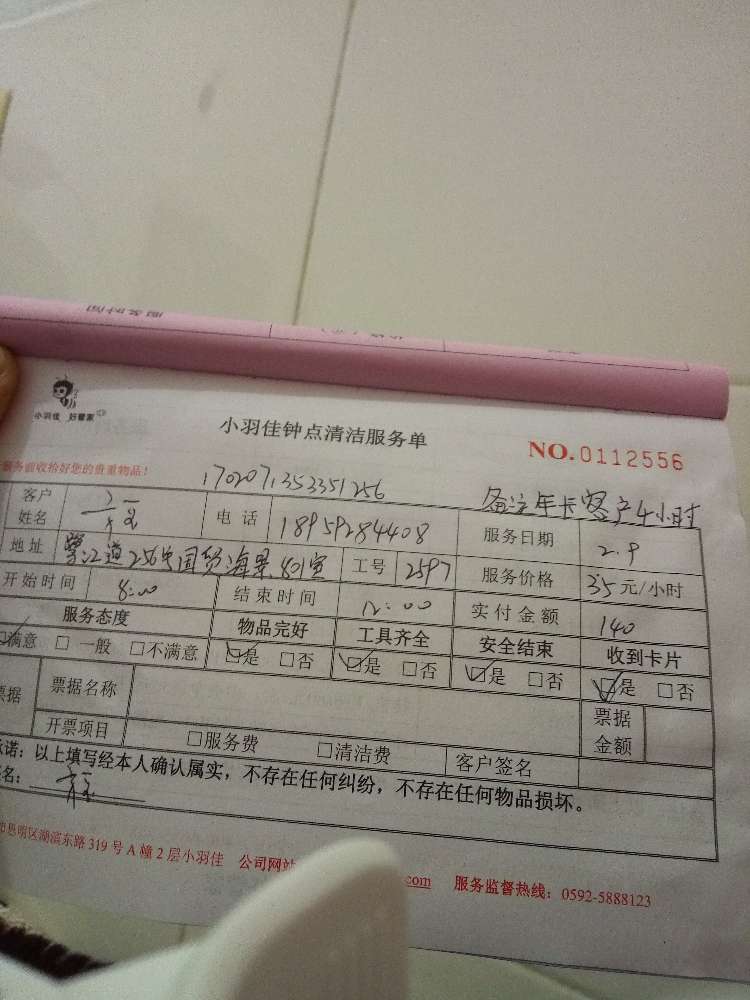 服务时间
小羽佳 好管家
小羽佳钟点清洁服务单
NO.0112556
服务前收拾好您的贵重物品!
1702071353351256
备注年卡客户4小时
客户姓名
电话 18959284408 服务日期 2.9
地址 256 国贸海景801室 工号 2597 服务价格 35元/小时
开始时间 8:00 结束时间 12:00 实付金额 140
服务态度 物品完好 工具齐全 安全结束 收到卡片
☑满意 □一般 □不满意 ☑是 □否 ☑是 □否 ☑是 □否 ☑是 □否
票据 票据名称 票据金额
开票项目 □服务费 □清洁费 客户签名
承诺:以上填写经本人确认属实,不存在任何纠纷,不存在任何物品损坏。
签名:
市思明区湖滨东路319号A幢2层小羽佳 公司网站 com 服务监督热线:0592-5888123